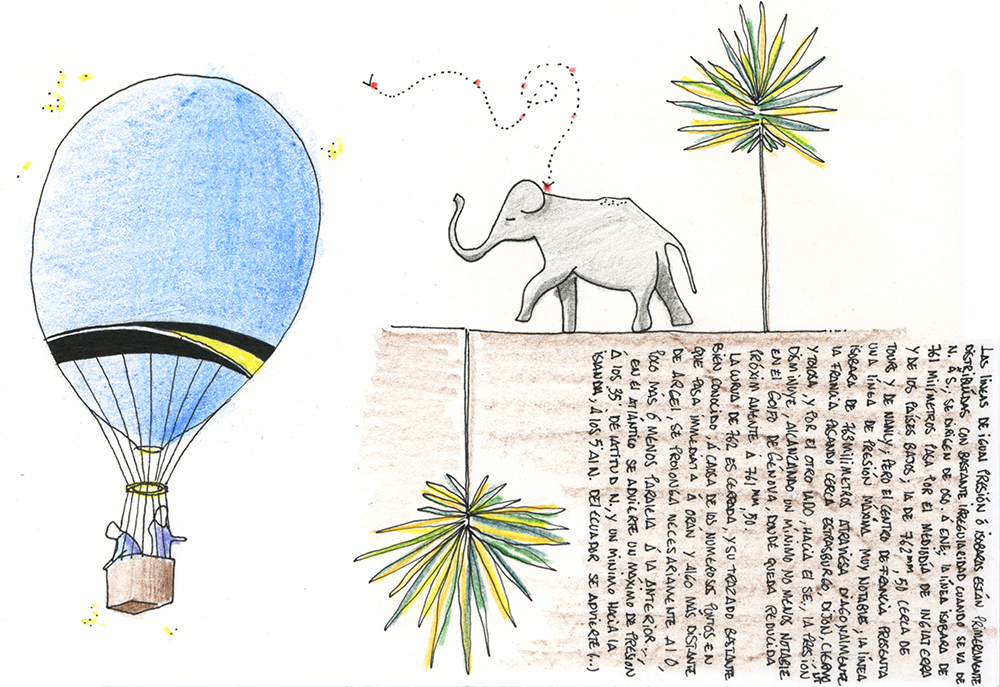 Las líneas de igual presión ó isobaras están primeramente
distribuídas con bastante irregularidad cuando se va de
N. á S.; se dirigen de OSO. á ENE; la línea isobara de
761 milímetros pasa por el mediodía de Inglaterra
y de los Países Bajos; la de 762mm, 50 cerca de
Tours y de Nancy; pero el centro de Francia presenta
una línea de presión máxima muy notable; la línea
isobara de 763 milímetros atraviesa diagonalmente
la Francia pasando cerca Estrasburgo, Dijon,
y Tolosa, y por el otro lado, hacia el SE, la presión
disminuye, alcanzando un mínimo no menos notable
en el Golfo de Génova, donde queda reducida
próximamente á 761mm,50.
La curva de 762 es cerrada, y su trazado bastante
bien conocido, á causa de los numerosos puntos en
que pasa inmediata á Oran y algo más distante
de Argel, se prolonga necesariamente al O,
poco más ó menos paralela á la anterior
En el Atlántico se advierte un máximo de presión
á los 35° de latitud N, y un mínimo hacia la
Islandia, á los 5° al N. del Ecuador se advierte (...)